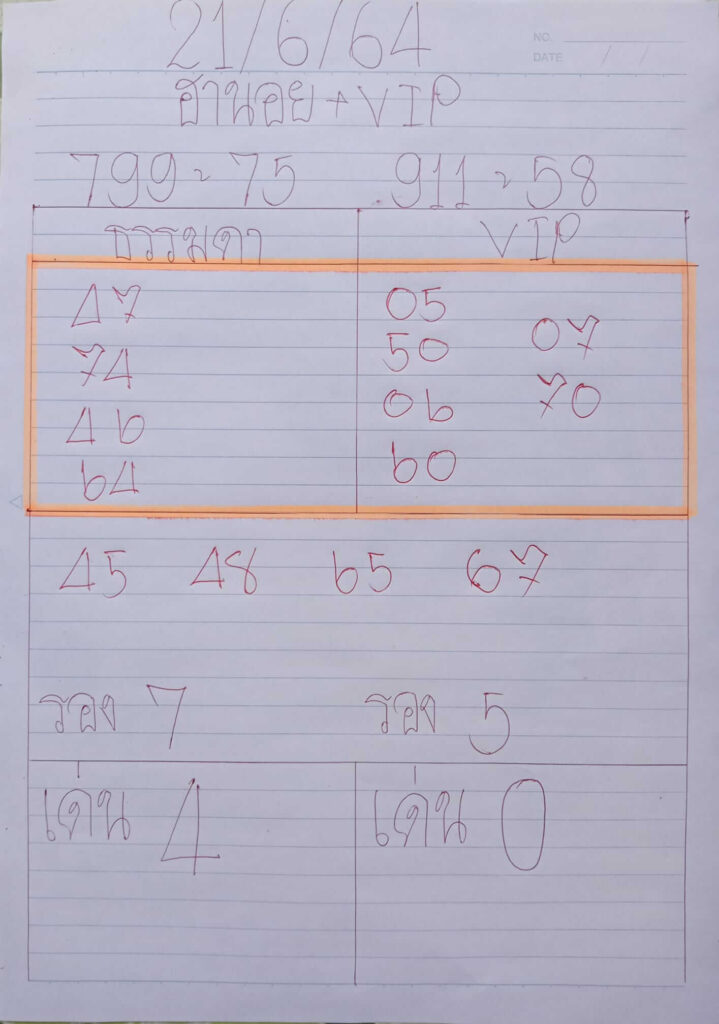 NO.
DATE / /
21/6/64
ฮานอย+VIP
799-75 911-58
ธรรมดา VIP
47 05 07
74 50 70
46 06
64 60
45 48 65 67
รอง 7 รอง 5
เด่น 4 เด่น 0